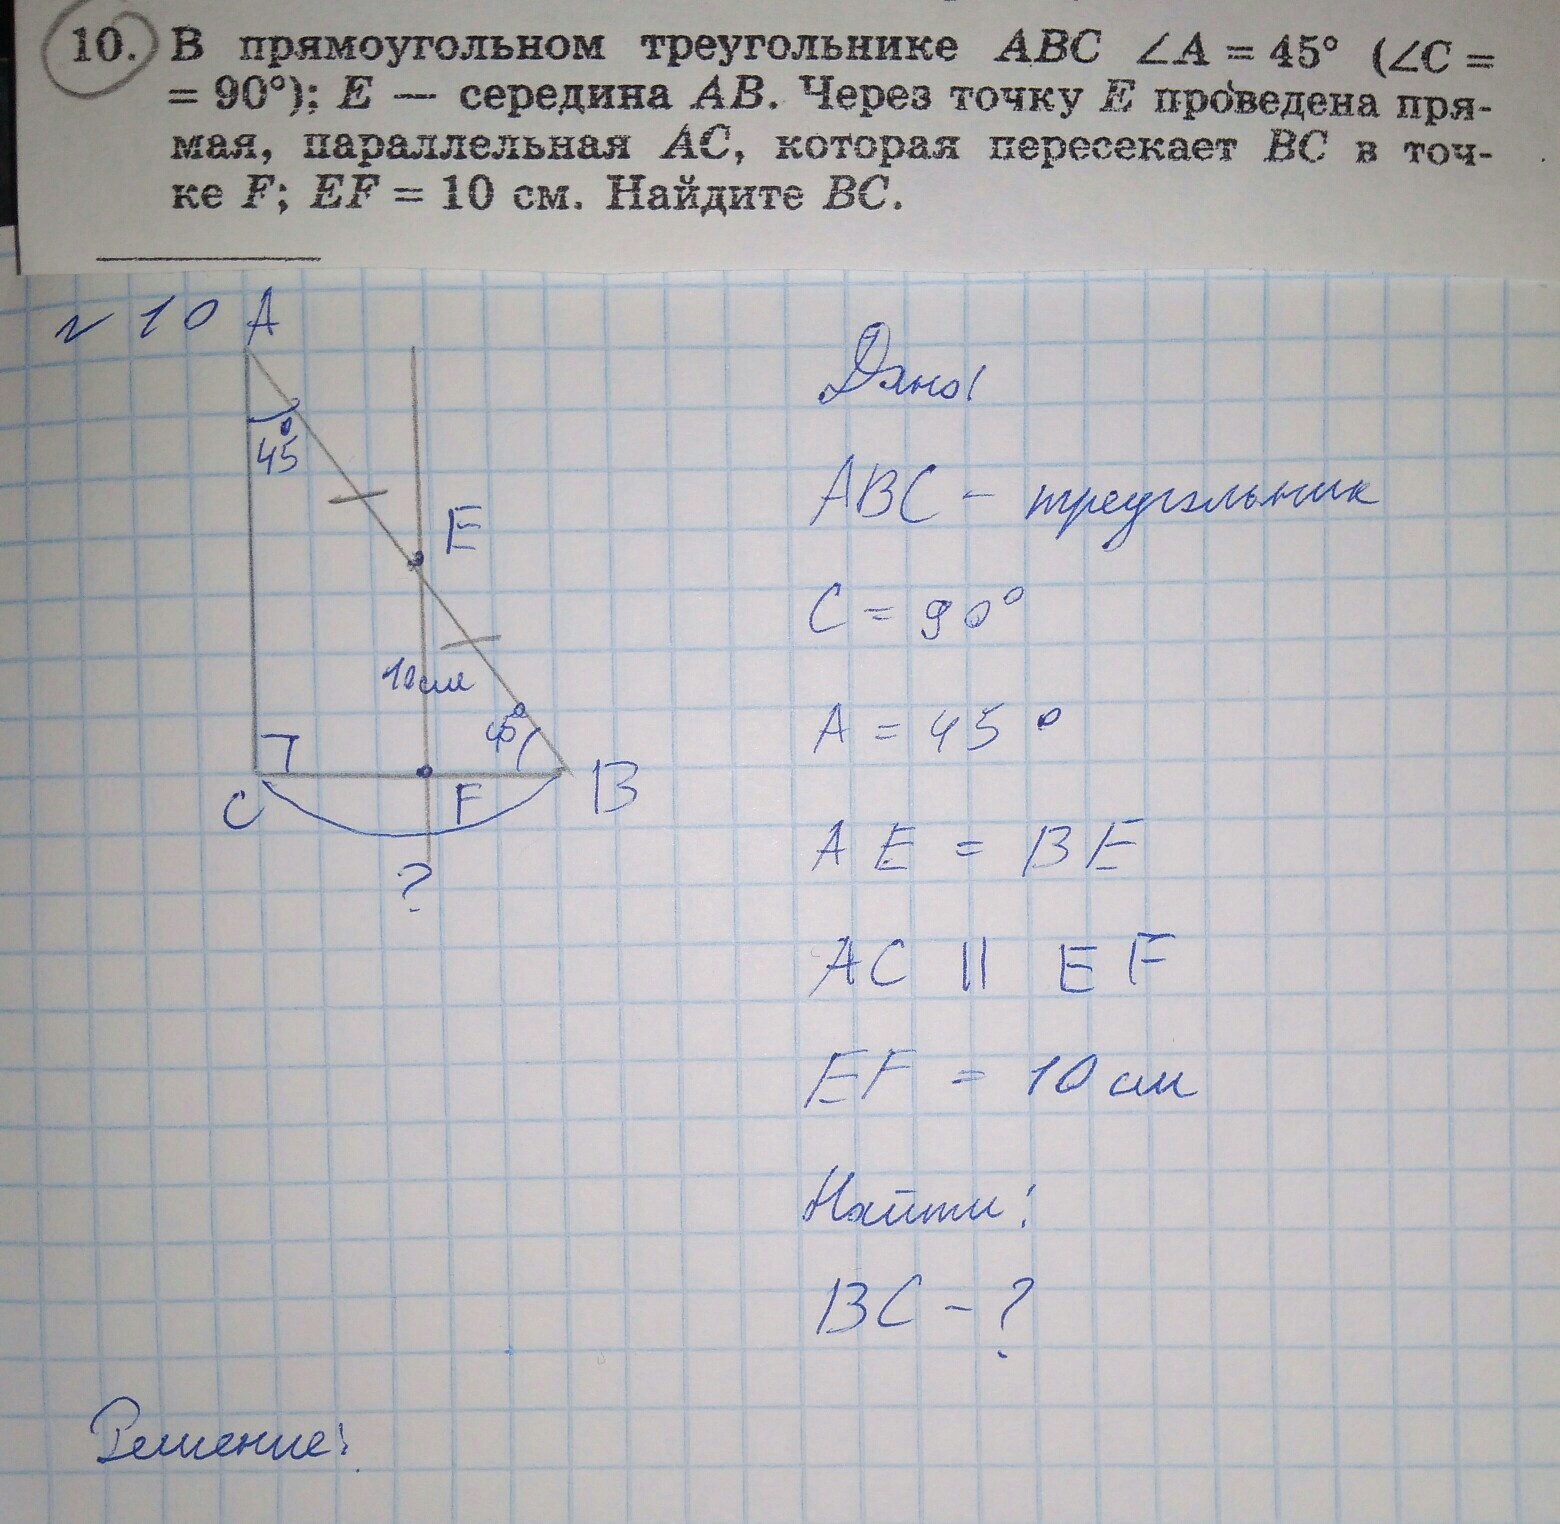 10. В прямоугольном треугольнике ABC ∠A = 45° (∠C =
= 90°); E — середина AB. Через точку E проведена пря-
мая, параллельная AC, которая пересекает BC в точ-
ке F; EF = 10 см. Найдите BC.
№ 10
A
45°
E
10 см
45°
C
F
B
?
Дано:
ABC - треугольник
C = 90°
A = 45°
AE = BE
AC || EF
EF = 10 см
Найти:
BC - ?
Решение: